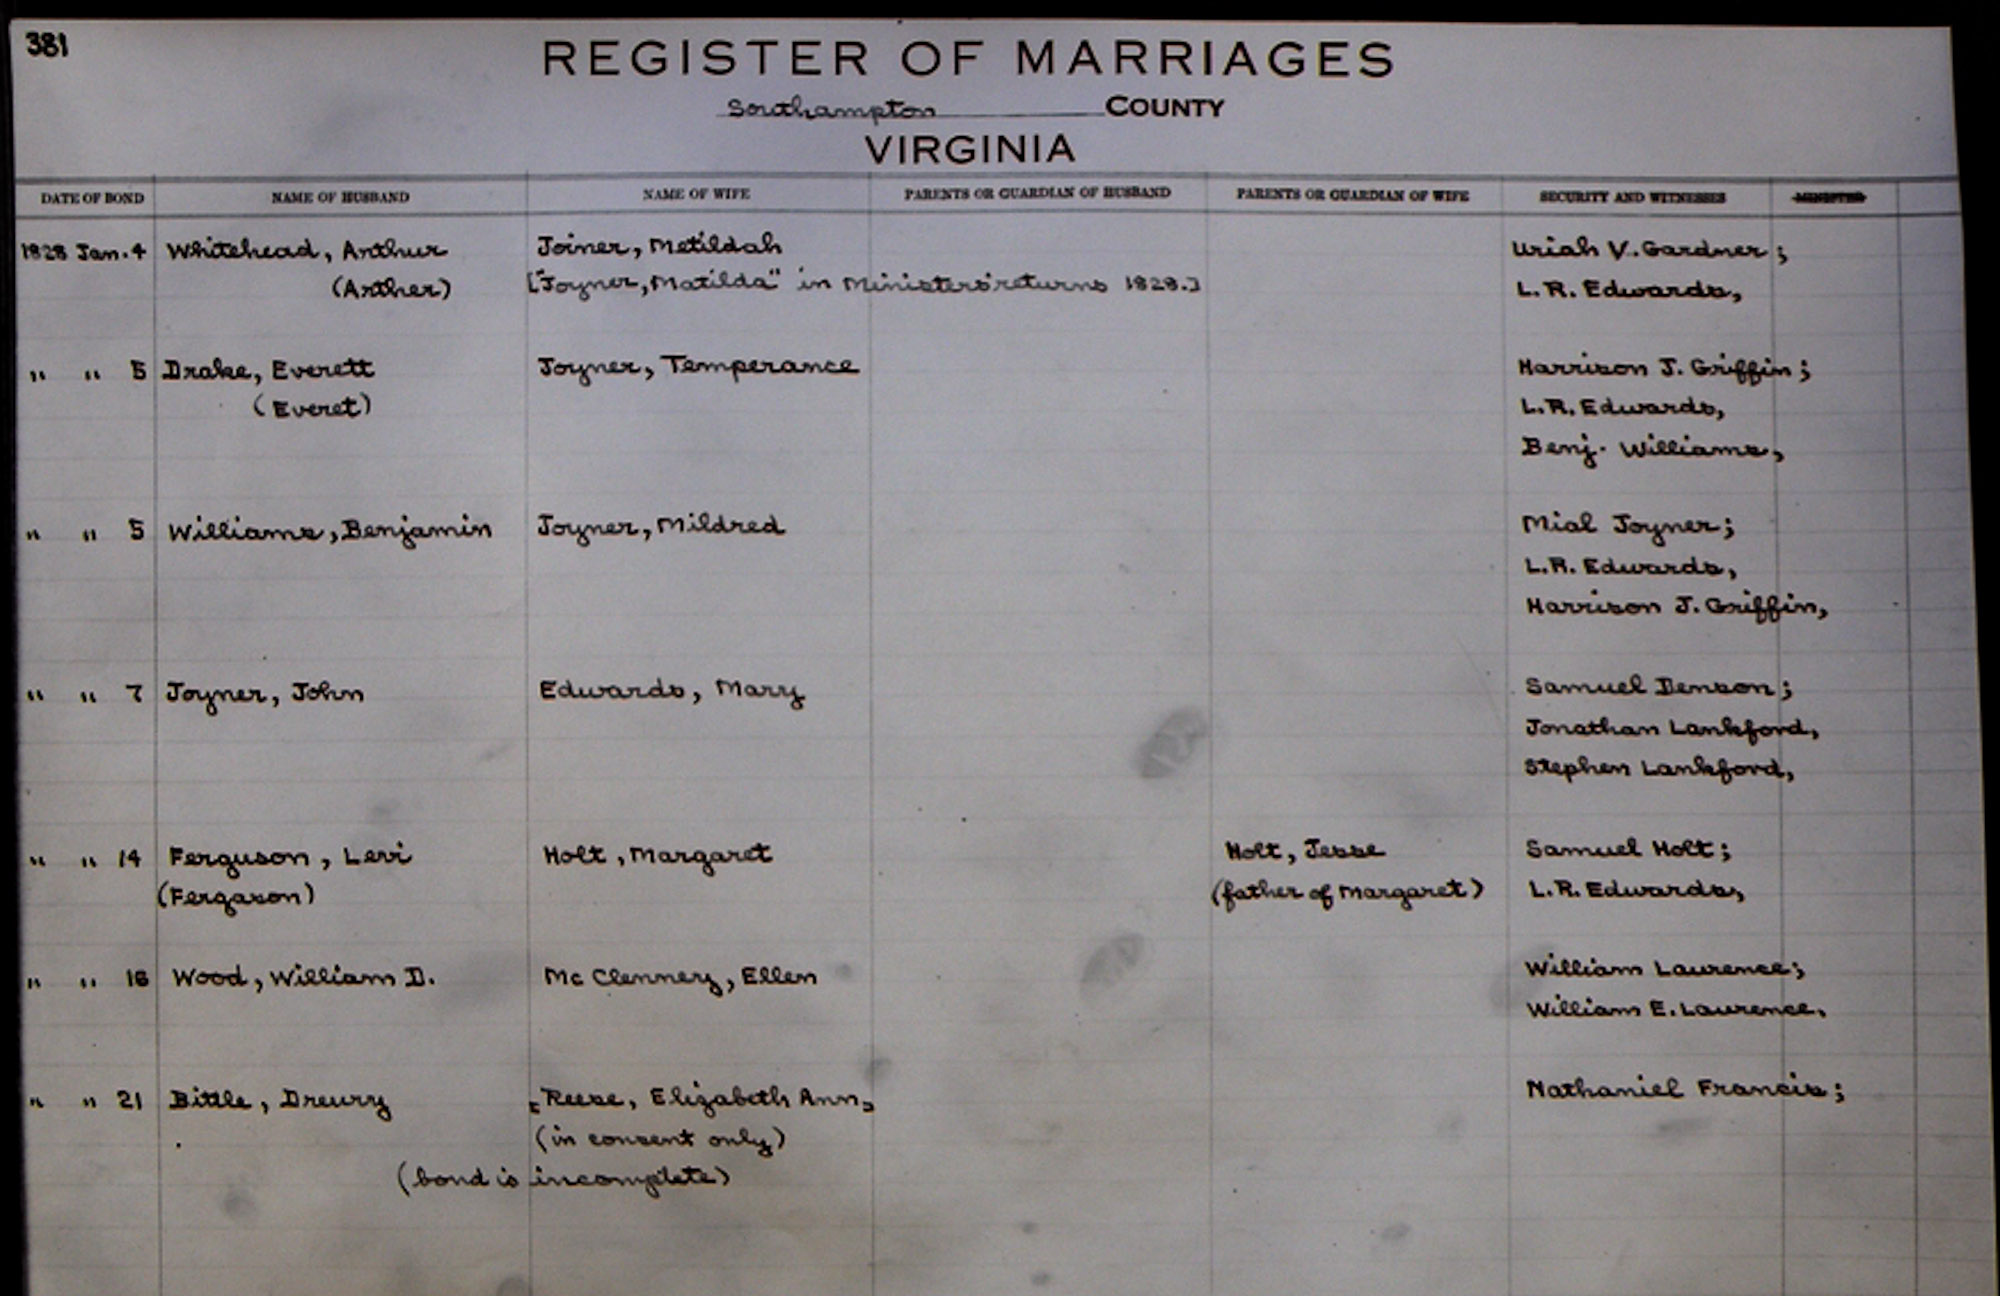 381
REGISTER OF MARRIAGES
Southampton COUNTY
VIRGINIA
DATE OF BOND NAME OF HUSBAND NAME OF WIFE PARENTS OR GUARDIAN OF HUSBAND PARENTS OR GUARDIAN OF WIFE SECURITY AND WITNESSES MINISTER
1828 Jan. 4 Whitehead, Arthur Joiner, Metildah Uriah V. Gardner;
(Arther) ["Joyner, Matilda" in Ministers' returns 1828.] L. R. Edwards,
" " 5 Drake, Everett Joyner, Temperance Harrison J. Griffin;
(Everet) L. R. Edwards,
Benj. Williams,
" " 5 Williams, Benjamin Joyner, Mildred Mial Joyner;
L.R. Edwards,
Harrison J. Griffin,
" " 7 Joyner, John Edwards, Mary Samuel Denson;
Jonathan Lankford,
Stephen Lankford,
" " 14 Ferguson, Levi Holt, Margaret Holt, Jesse Samuel Holt;
(Fergason) (father of Margaret) L. R. Edwards,
" " 16 Wood, William D. Mc Clenney, Ellen William Laurence;
William E. Laurence,
" " 21 Bittle, Drewry [Reese, Elizabeth Ann] Nathaniel Francis;
(in consent only)
(bond is incomplete)